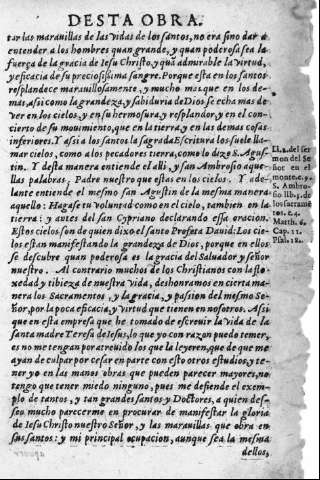 DESTA OBRA.
tar las marauillas de las vidas de los santos, no era sino dar a
entender a los hombres quan grande, y quan poderosa sea la
fuerça de la gracia de Iesu Christo, y quã admirable la virtud,
y eficacia de su preciosissima sangre. Porque esta en los santos
resplandece marauillosamente, y mucho mas que en los de-
mas, assi como la grandeza, y sabiduria de Dios se echa mas de
ver en los cielos, y en su hermosura, y resplandor, y en el con-
cierto de su mouimiento, que en la tierra, y en las demas cosas
inferiores. Y assi a los santos la sagrada Escritura los suele lla-
mar cielos, como a los pecadores tierra, como lo dizo S. Agus-
tin. Y desta manera entiende el alli, y san Ambrosio aque-
llas palabras, Padre nuestro que estas en los cielos. Y ade-
lante entiende el mesmo san Agustin de la mesma manera
aquello: Hagase tu voluntad como en el cielo, tambien en la
tierra: y antes del san Cypriano declarando essa oracion.
Estos cielos son de quien dixo el santo Profeta Dauid: Los cie-
los estan manifestando la grandeza de Dios, porque en ellos
se descubre quan poderosa es la gracia del Saluador y señor
nuestro. Al contrario muchos de los Christianos con la flo-
xedad y tibieza de nuestra vida, deshonramos en cierta ma-
nera los Sacramentos, y la gracia, y passion del mesmo Se-
ñor, por la poca eficacia, y virtud que tienen en nosotros. Assi
que en esta empresa que he tomado de escreuir la vida de la
santa madre Teresa de Iesus, lo que yo con razon puedo temer,
es no me tengan por atreuido los que la leyeren, que de que me
ayan de culpar por cesar en parte con esto otros estudios, y te-
ner yo en las manos obras que pueden parecer mayores, no
tengo que tener miedo ninguno, pues me defiende el exem-
plo de tantos, y tan grandes santos y Doctores, a quien des-
seo mucho parecerme en procurar de manifestar la gloria
de Iesu Christo nuestro Señor, y las marauillas que obra en
sus santos: y mi principal ocupacion, aunque sea la mesma
dellos,
Li. 2. del ser
mon del Se
ñor en el
monte. c. 9.
S. Ambro
sio lib. 5. de
los sacramẽ
tos. c. 4.
Matth. 6.
Cap. 11.
Psal. 18.